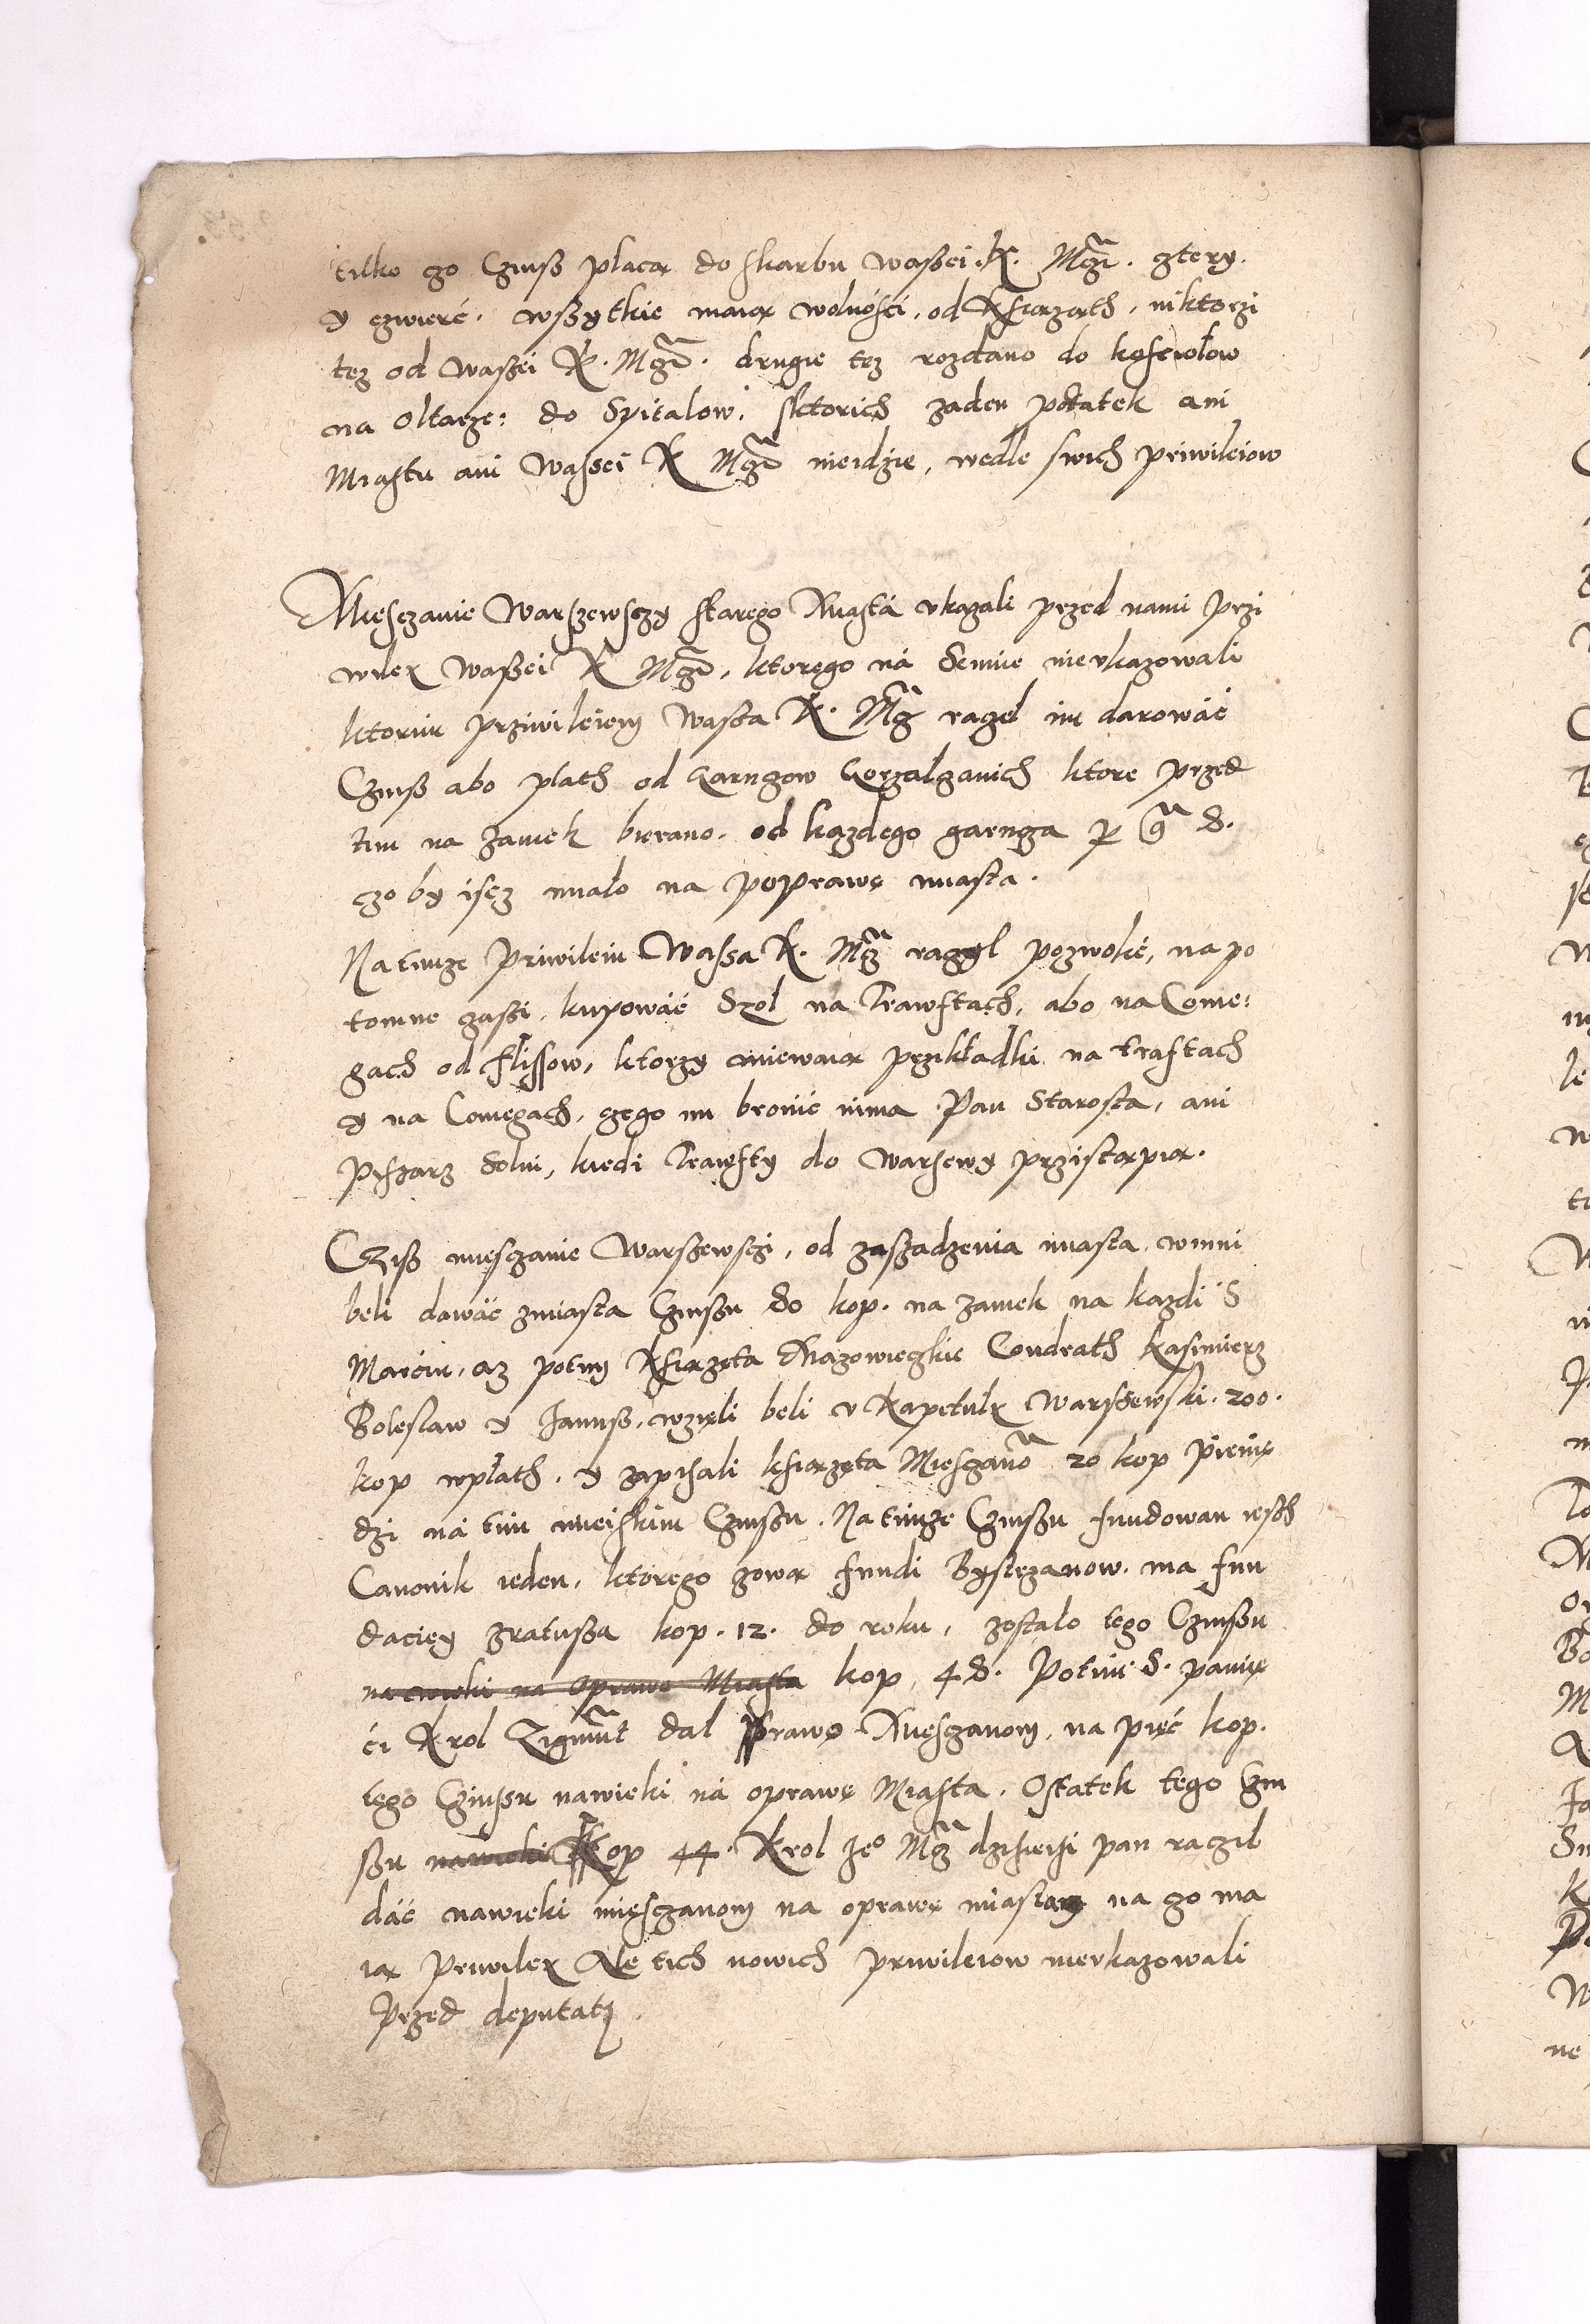 tilko czo Czinsß placą do skarbu waßei K. Mczi. cztery.
y czwierć. wßytkie maią wolnosci, od Ksiąząth, niktorzi
tez od waßei K. Mczi. drugie tez rozdano do kosciolow
na Oltarze: do Spitalow, sktorich zaden podatek ani
Miastu ani wassei K Mczi nieidzie, wedle swich priwileiow
Miesczanie Warszewsczy starego Miastá vkazali przed nami Przi
wilei waßei K Mczi, ktorego ná Semie nievkazowali
ktorim prziwileiem wasza K. Mcz raczel im darowáć
Czinß abo plath od garnczow gorzalczanich ktore przed
tim na zamek bierano. od kazdego garncza
czo by iscz mialo na poprawę miasta.
Na timze Priwileiu Wassa K. Mcz raczyl pozwolić, na po
tomne czassi, kupowáć Szol na Trawftach, abo na Come:
gach od flissow, ktorzy miewaią przikładki na traftach
y na Comegach, czego im bronić nima Pan Starosta, ani
Pyszarz Solni, kiedi Trawfty do Warsewy przistąpią.
Cziß miesczanie Warszewsczi, od zaszadzenia miasta, winni
beli dawáć zmiasta Czinßu 80 kop. na zamek na kazdi S
Marcin, az potim Ksiązęta Mazowieczkie Condrath Kasimierz
Boleslaw y Janusß, wzięli beli v Kapetuly Warszewski. 200.
kop wplath. y zapisali ksiązęta Miesczano 20 kop pienię
dzi ná tim mieiskim Czinßu. Na timze Czinßu fundowan iesth
Canonik ieden, ktorego zową fundi Bystrzanow. ma fun
daciey zratußa kop. 12. do roku, zostalo tego Czinßu
na wieki na Oprawe Miasta kop, 48. Potim S. pamię
ci Krol Zigmut dal Prawo Miesczanom, na pięć kop.
tego Czinssu nawieki ná oprawę Miasta. Ostatek tego Czin
ßu nawieki Kop 44. Krol Jeo Mcz dzisieisi pan raczil
dáć nawieki miesczanom na oprawę miasta na czo ma
ią Priwilei Ale tich nowich priwileiow nievkazowali
Przed deputati.